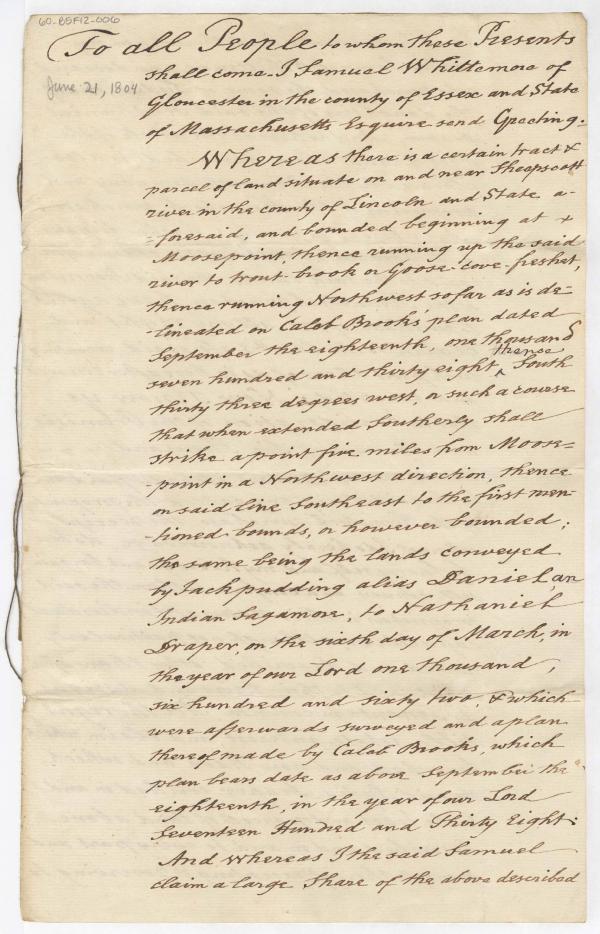 60-B5F12-006
To all People to whom these Presents
shall come I Samuel Whittemore of
June 21, 1804
Gloucester in the county of Essex and State
of Massachusetts Esquire send Greeting.
Whereas there is a certain tract &
parcel of land situate on and near Sheepscott
river in the county of Lincoln and State a-
-foresaid, and bounded beginning at
Moosepoint, thence running up the said
river to trout-brook or Goose-cove-freshet,
thence running Northwest so far as is de=
-lineated on Caleb Brook's plan dated
September the eighteenth, one thousand
thence
seven hundred and thirty eight ^ South
thirty three degrees west, or such a course
that when extended Southerly shall
strike a point five miles from Moose=
-point in a Northwest direction, thence
on said line Southeast to the first men-
-tioned bounds, or however bounded;
the same being the lands conveyed
by Jackpudding alias Daniel, an
Indian Sagamore, to Nathaniel
Draper, on the sixth day of March, in
the year of our Lord one thousand,
six hundred and sixty two, & which
were afterwards surveyed and a plan
thereof made by Caleb Brooks, which
plan bears date as above September the
eighteenth, in the year of our Lord
Seventeen Hundred and Thirty Eight:
And whereas I the said Samuel
claim a large Share of the above described